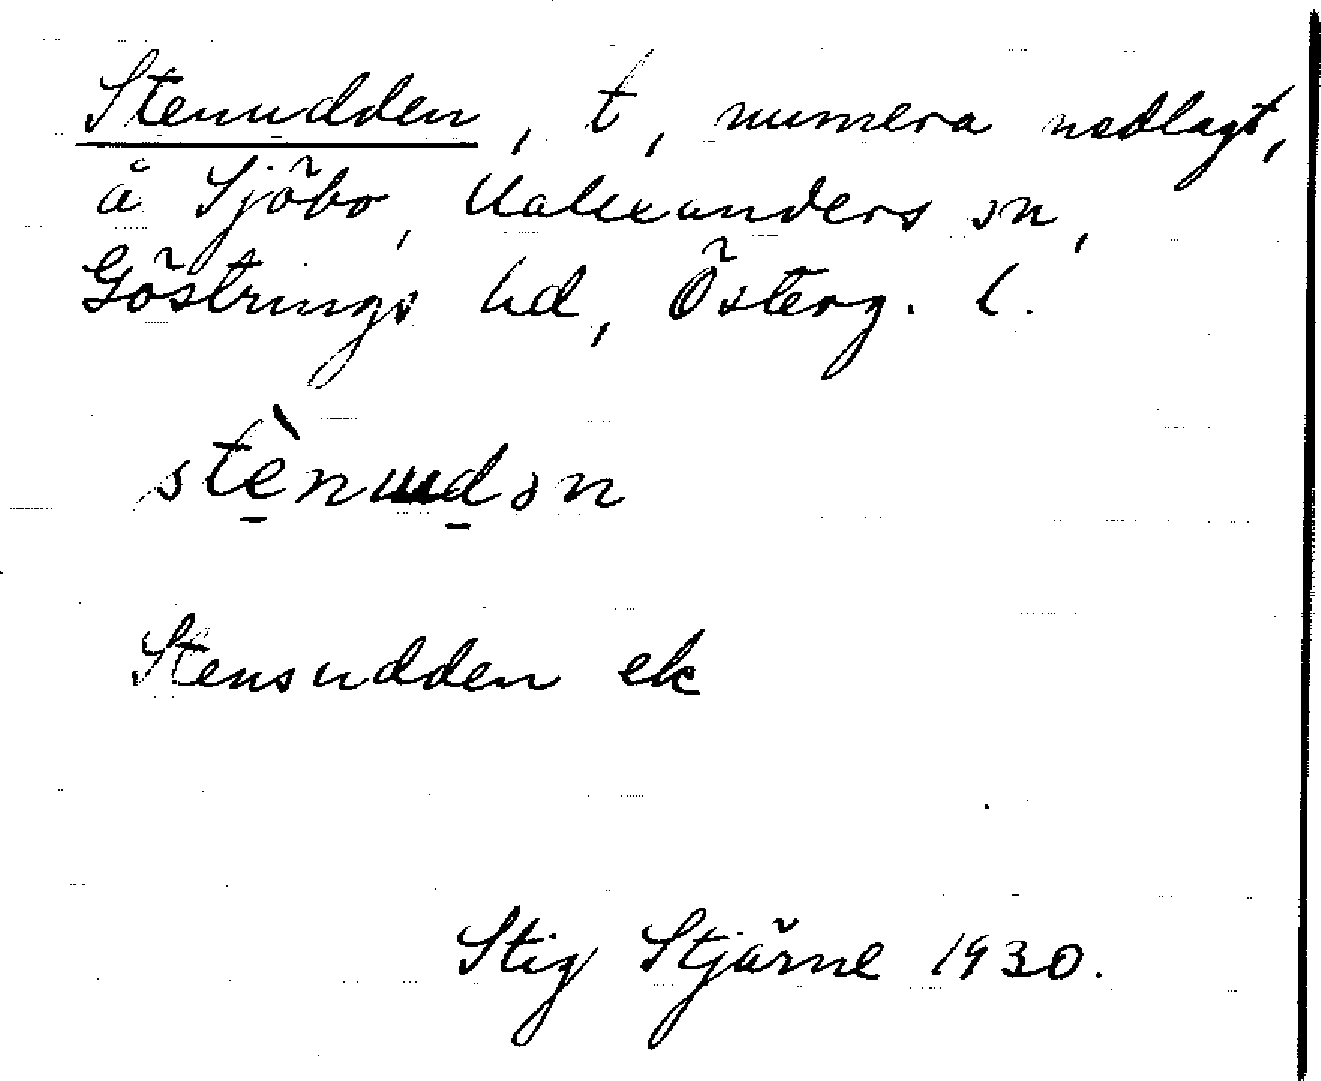 Stenudden, t, numera nedlagt,
å Sjöbo, Ualexanders sn,
Göstrings hd, Österg. l.
stè̠nud̠ən
Stensudden ek
Stig Stjärne 1930.